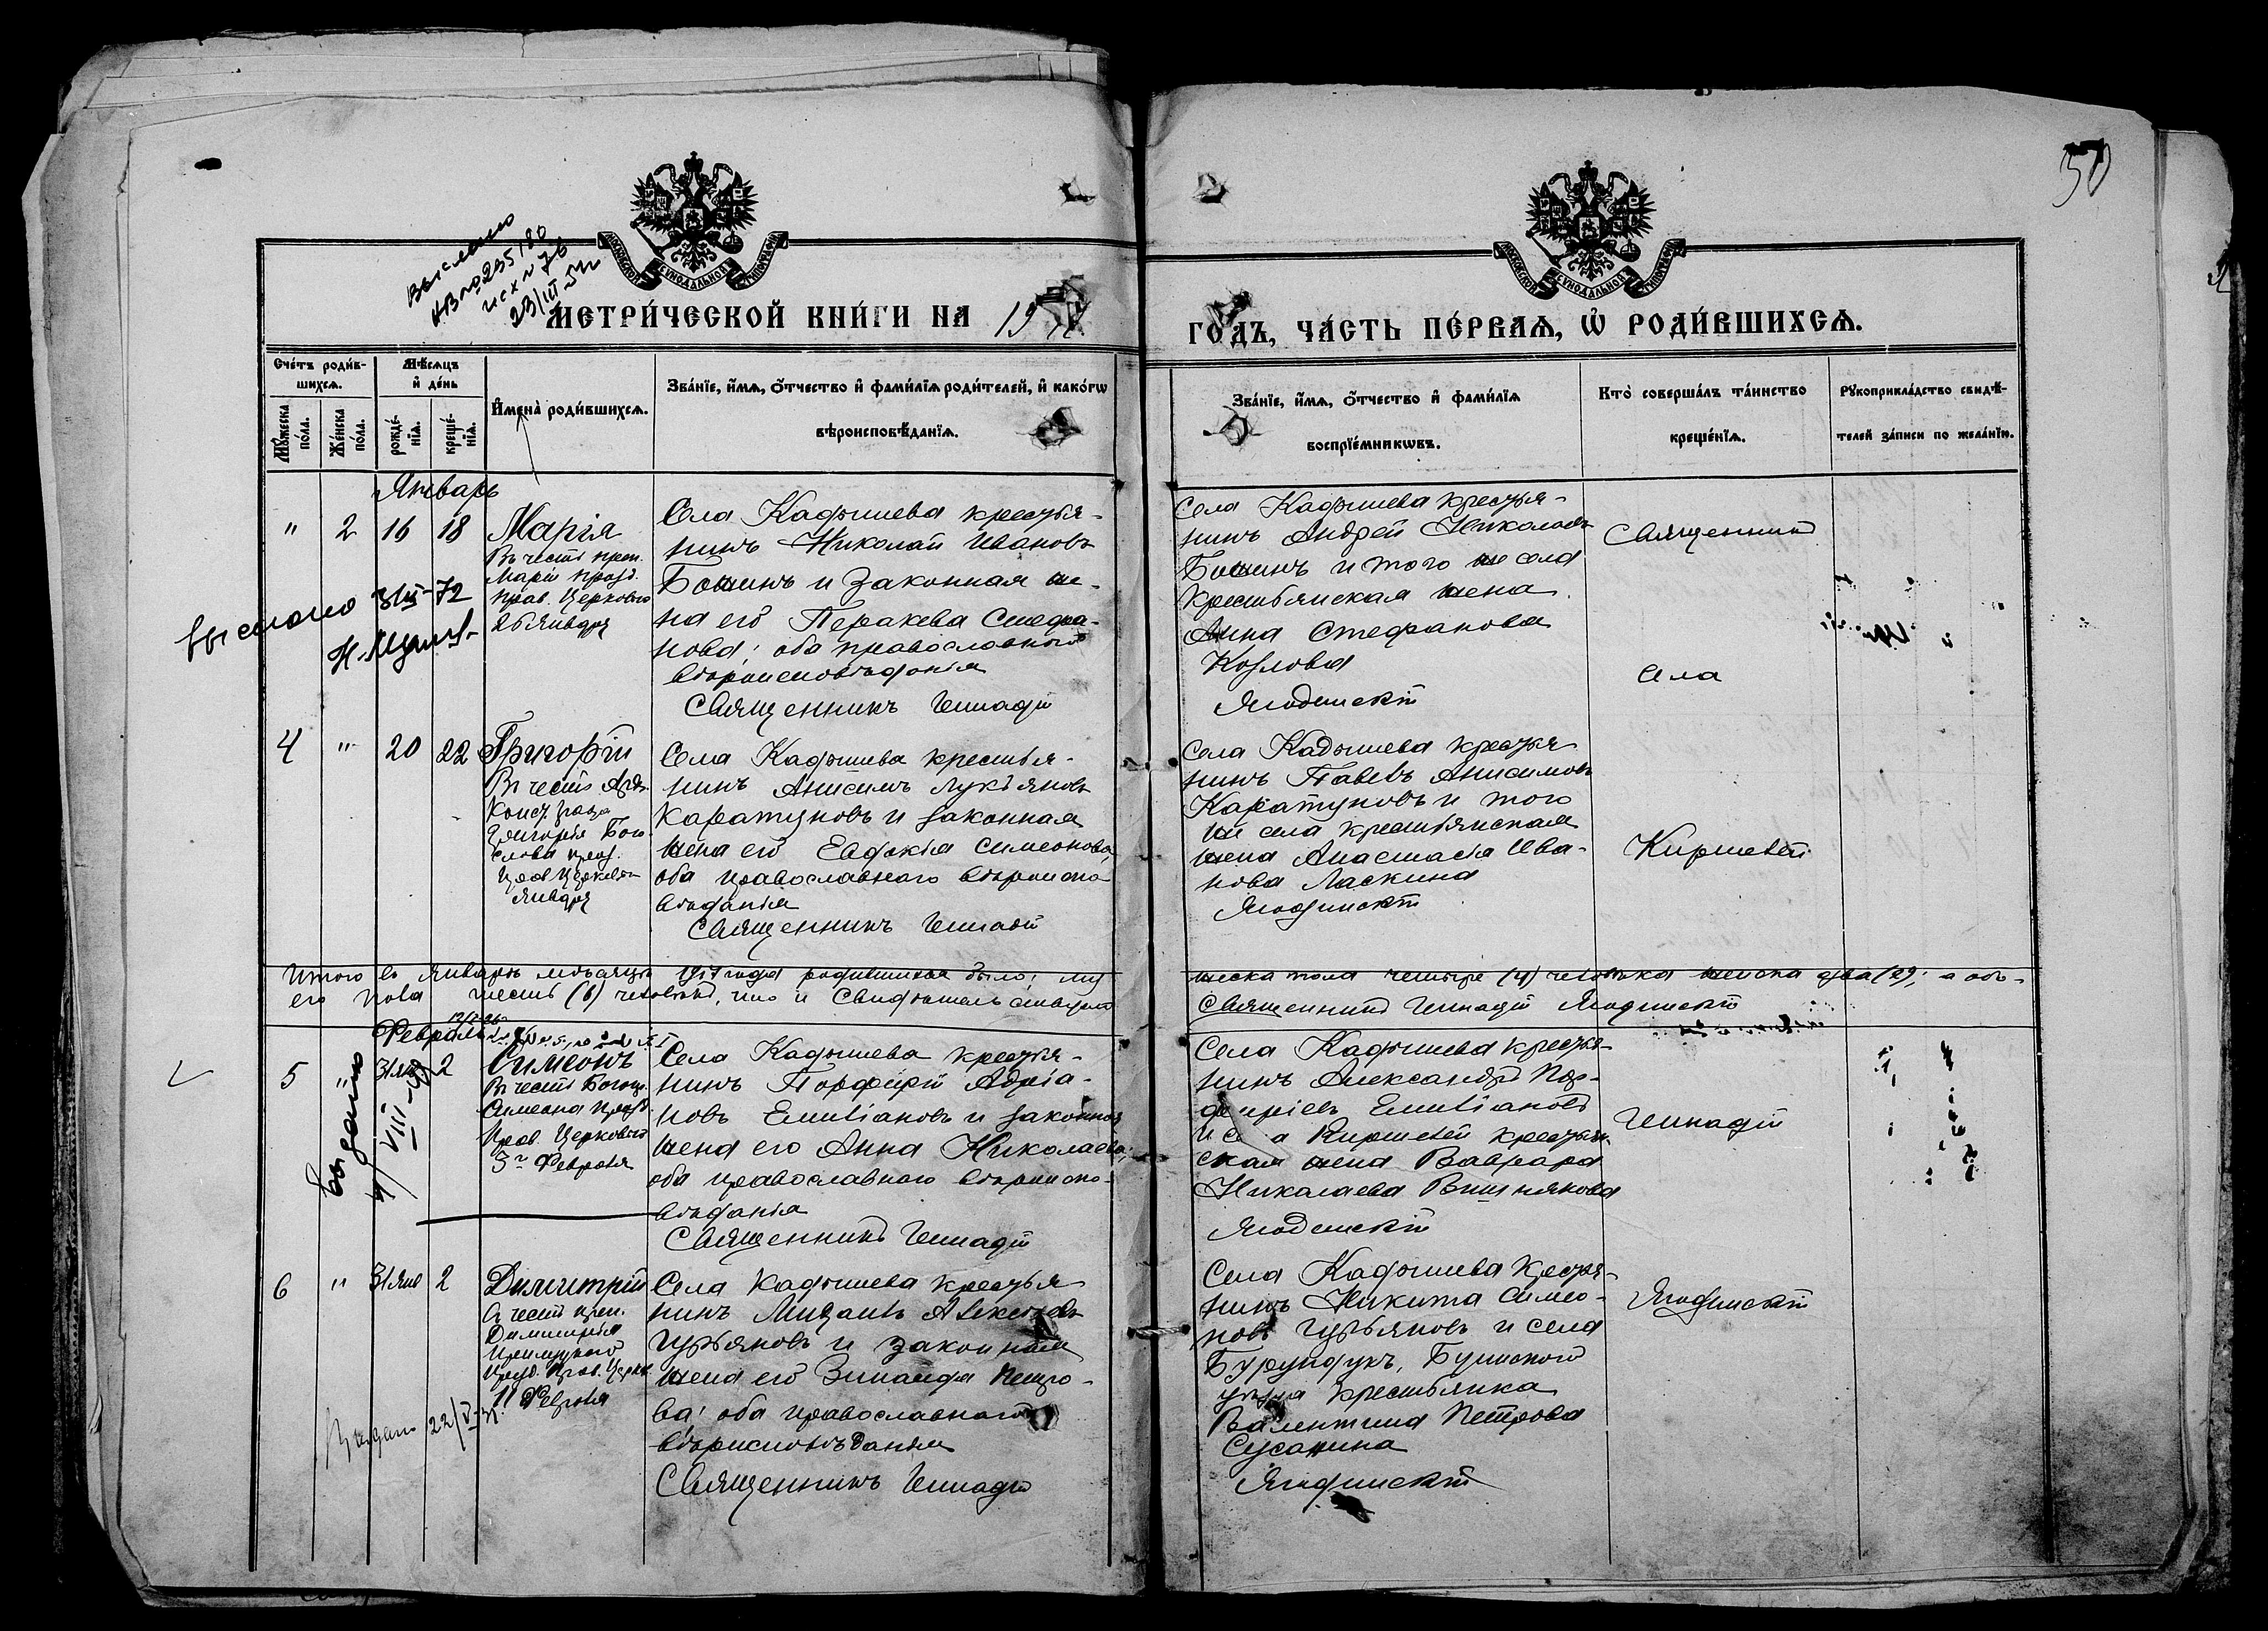 50
Выслано
исх N 76
МЕТРИ́ЧЕСКОЙ КНИ́ГИ НА 19
ГОДЪ, ЧА́СТЬ ПЕ́РВАѦ, Ѡ҆ РОДИ́ВШИХСѦ.
Сче́тъ роди́в-
шихсѧ.
Мѣ́сѧцъ
и҆ де́нь
И҆мена̀ роди́вшихсѧ.
Зва́нїе, и҆́мѧ, о҆́тчество и҆ фами́лїѧ роди́телей, и҆ како́гѡ
вѣроисповѣ́данїѧ.
Мꙋ́жеска по́ла.
Же́нска по́ла.
рожде́-
нїѧ.
креще́-
нїѧ.
Зва́нїе, и҆́мѧ, о҆́тчество и҆ фами́лїѧ
воспрїе́мникѡвъ.
Кто̀ соверша́лъ та́инство
креще́нїѧ.
Рꙋкоприкла́дство свидѣ́-
телей за́писи по жела́нїю.
Январь
" 2 16 18 Марія
Въ честь преп.
Маріи празд.
прав. Церковью
26 Января
Села Кадышева крестья-
нинъ Николай Ивановъ
Бошинъ и законная же-
на его Параскева Стефа-
нова; оба православнаго
вѣроисповѣданія
Священникъ Геннадій
Села Кадышева крестья-
нинъ Андрей Николаевъ
Бошинъ и того же села
крестьянская жена
Анна Стефанова
Козлова
Ягодинскій
Священникъ
села
Выслано 31/III-72
4 " 20 22 Григорій
Въ честь Арх.
Конст. града
Григорія Бого-
слова празд.
Прав Церковью
Января
Села Кадышева крестья-
нинъ Анисимъ Лукьяновъ
Каратуновъ и законная
жена его Евдокія Симеонова;
оба православнаго вѣроиспо-
вѣданія
Священникъ Геннадій
Села Кадышева крестья-
нинъ Павелъ Анисимовъ
Каратуновъ и того
же села крестьянская
жена Анастасія Ива-
нова Ласкина
Ягодинскій
Киршелей
Итого въ Январѣ мѣсяцѣ 1917 года родившихся было; му
жеска пола четыре (4) человѣка женска два (2); а обо-
его пола шесть (6) человѣкъ, что и свидѣтельствуетъ
Священникъ Геннадій Ягодинскій
Февраль
5 " 31 янв 2 Симеонъ
Въ честь Богопр.
Симеона празд.
Прав. Церковью
3го Февраля
Села Кадышева крестья-
нинъ Порфирій Адріа-
новъ Емеліановъ и законная
жена его Анна Николаева;
оба православнаго вѣроиспо-
вѣданія
Священникъ Геннадій
Села Кадышева крестья-
нинъ Александръ Пор-
фиріевъ Емеліановъ
и села Киршелей крестьян-
ская жена Варвара
Николаева Вишнякова
Ягодинскій
Геннадій
Выдано
6 " 31 янв 2 Димитрій
Въ честь преп.
Димитрія
Прилуцкаго
празд. Прав. Церков
11 Февраля
Села Кадышева крестья-
нинъ Михаилъ Алексѣевъ
Гурьяновъ и законная
жена его Зинаида Петро-
ва; оба православнаго
вѣроисповѣданія
Священникъ Геннадій
Села Кадышева крестья-
нинъ Никита Симео-
новъ Гурьяновъ и села
Бурундукъ, Буинского
уѣзда крестьянка
Валентина Петрова
Сусанина
Ягодинскій
Ягодинскій
Выдано 22/V-31.